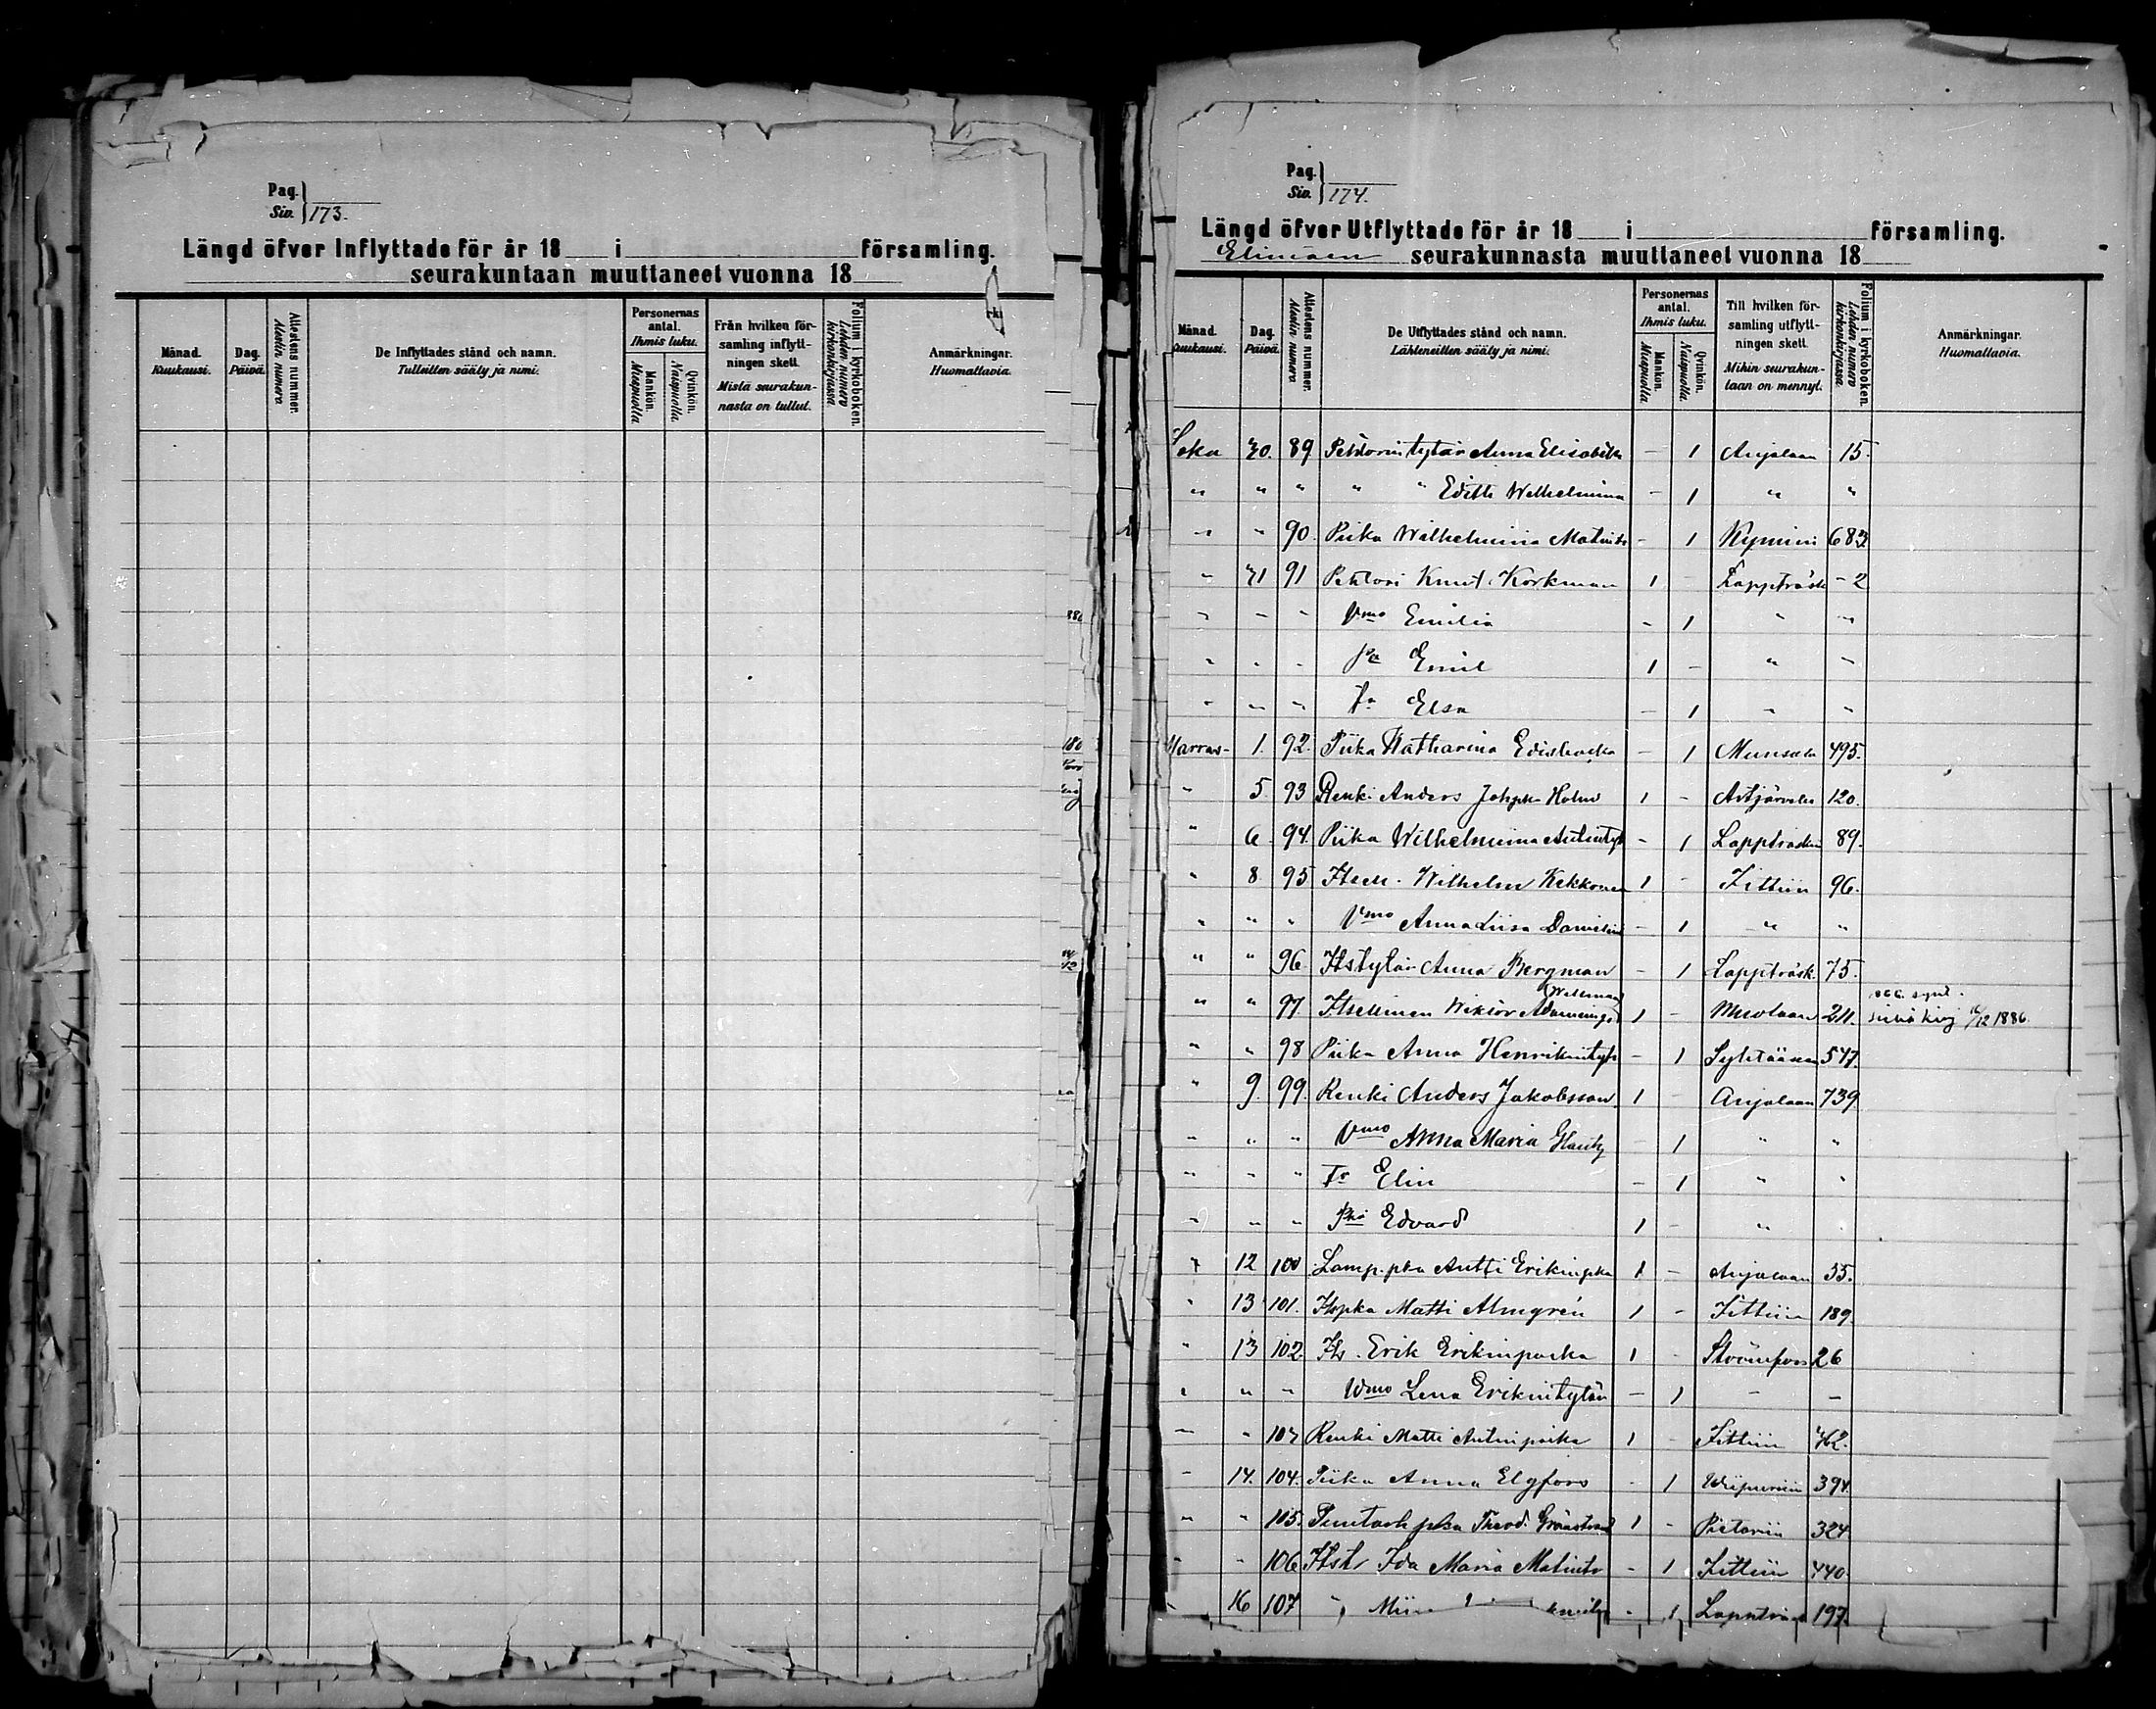 Pag.
Siv. 173.
Längd öfver Inflyttade för år 18 i församling.
seurakuntaan muuttaneet vuonna 18
Månad. Kuukausi.
Dag. Päivä.
Attestens nummer. Alestin numero
De Inflyttades stånd och namn. Tulleitten sääty ja nimi.
Personernas antal. Ihmis luku.
Mankön. Miespuolia
Qvinkön. Naispuolia.
Från hvilken för-
samling inflytt-
ningen skett.
Mistä seurakun-
nasta on tullut.
Folium i kyrkoboken. Lehden numero kirkonkirjassa
Anmärkningar. Huomattavia.
Pag.
Siv. 174.
Längd öfver Utflyttade för år 18 i församling.
Elimäen seurakunnasta muuttaneet vuonna 18
Månad. Kuukausi.
Dag. Päivä.
Attestens nummer. Alestin numero
De Utflyttades stånd och namn. Lähteneitten sääty ja nimi.
Personernas antal. Ihmis luku.
Mankön. Miespuolia.
Qvinkön. Naispuolia.
Till hvilken för-
samling utflytt-
ningen skett.
Mihin seurakun-
taan on mennyt.
Folium i kyrkoboken. Lehden numero kirkonkirjassa.
Anmärkningar. Huomattavia.
Loka 30. 89 tytär Anna Elisabeth - 1 Anjalaan 15.
" " " " " Edith Wilhelmina - 1 " "
" " 90. Piika Wilhelmina - 1 Kymiin 683
" 31 91 Pehtori Knut Korkman 1 - Lappträsk - 2
" " " Vmo Emilia - 1 " "
" " " Pa Emil 1 - " "
" " " Ta Elsa - 1 " "
Marras- 1. 92. Piika Katharina - 1 Munsala 495.
" 5. 93 Renki Anders Holm 1 - Artjärvelle 120.
" 6. 94. Piika Wilhelmina Antintyt - 1 89.
" 8. 95 Itsell. Wilhelm Kekkonen 1 - Iittiin 96.
" " " Vmo Anna Liisa - 1 " "
" " 96. Itstytär Anna Bergman - 1 Lappträsk. 75.
" " 97. Itsellinen Wiktor 1 - 211. 16/12 1886.
" " 98 Piika Anna Henrikintyt - 1 547.
" 9. 99. Renki Anders Jakobsson. 1 - Anjalaan 739
" " " Vmo Anna Maria - 1 " "
" " " Tr Elin - 1 " "
" " " Pka Edvard 1 - " "
" 12 100 Lamp.pka Antti Erikinpka 1 - Anjalaan 35.
" 13 101. Itspka Matti Almgrén 1 - Iittiin 189.
" 13 102 Its. Erik Erikinpoika 1 - Strömfors 26
" " " Wmo Lena Erikintytär - 1 - -
" " 103 Renki Matti Antinpoika 1 - Iittiin 462.
" 14. 104. Piika Anna Elgfors - 1 Wiipuriin 394.
" " 105. pka Theod. 1 - Pietariin 324.
" " 106 Itstr Ida Maria Matintr - 1 Iittiin 440.
16 107 " - 1 197.